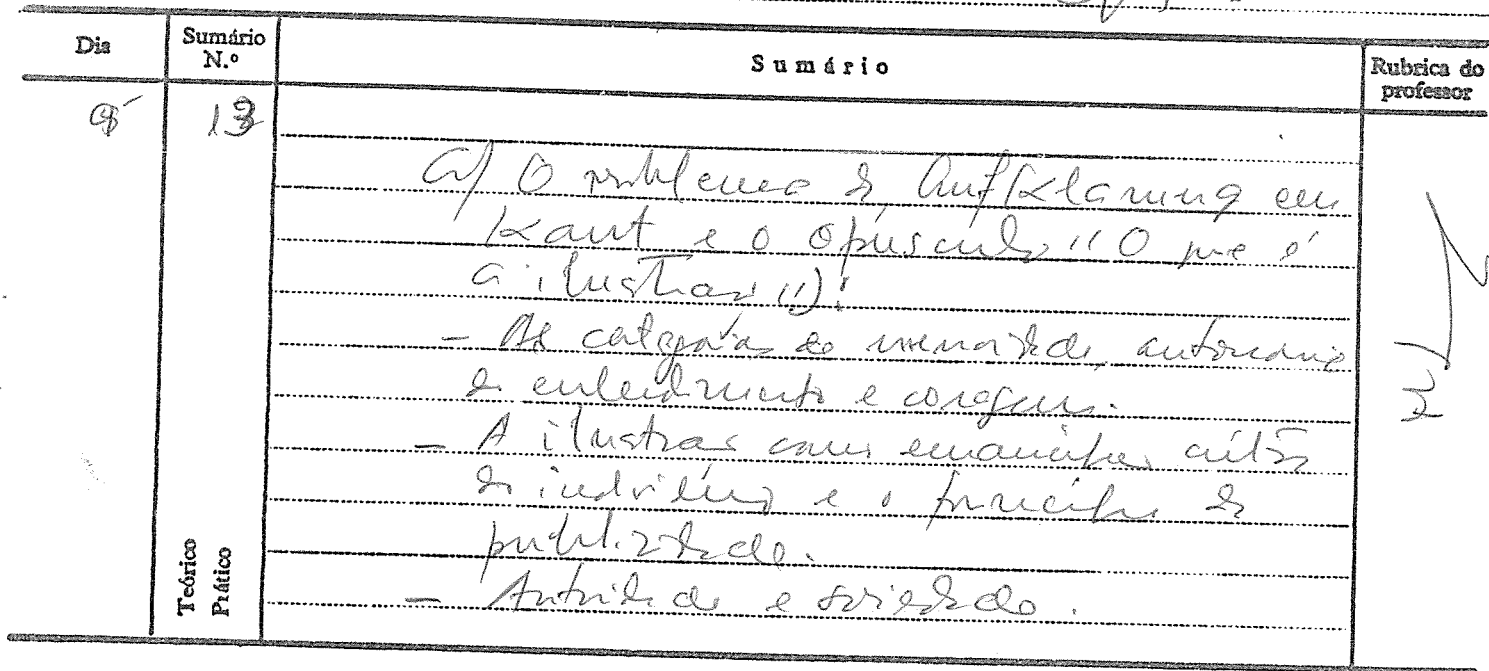 Dia Sumário N.º Sumário Rubrica do professor
13
a) O problema da Aufklärung em
Kant e o opúsculo "O que é
a ilustração":
- As categorias de menoridade, autonomia
de entendimento e coragem.
- A ilustração como emancipação crítica
do indivíduo e o princípio da
publicidade.
- Autoridade e sociedade.
Teórico
Prático